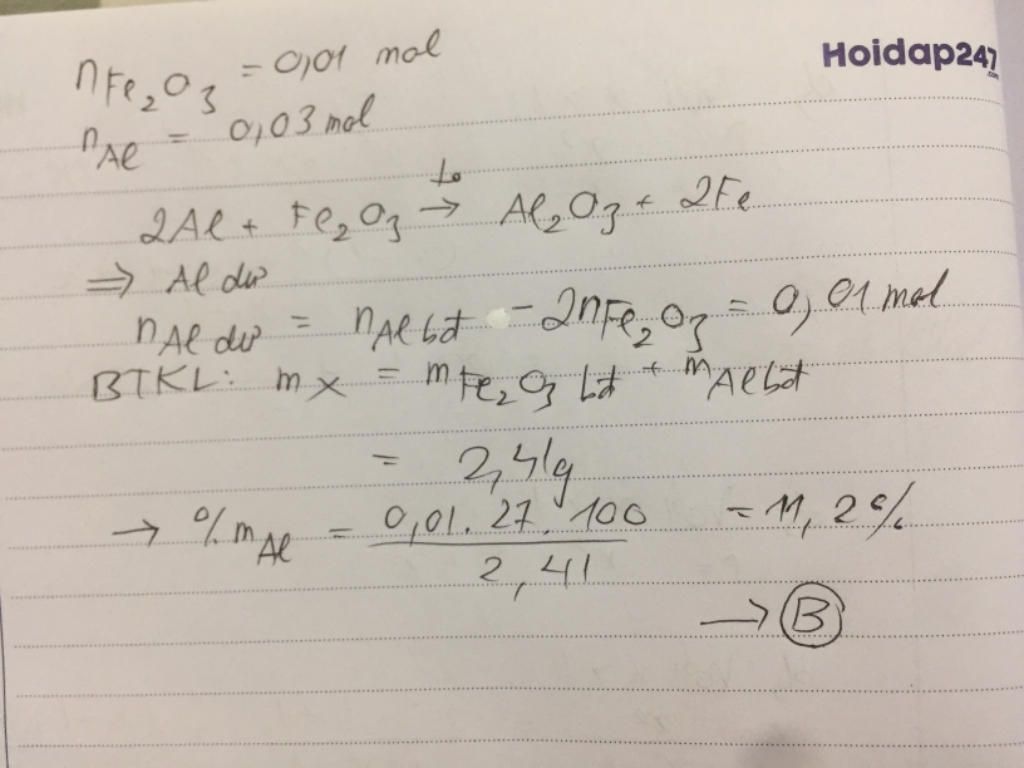 nFe₂O₃ = 0,01 mol
Hoidap247
.com
nAl = 0,03 mol
2Al + Fe₂O₃ →(t°) Al₂O₃ + 2Fe
⇒ Al dư
nAl dư = nAl bđ - 2nFe₂O₃ = 0,01 mol
BTKL: mX = mFe₂O₃ bđ + mAl bđ
= 2,41g
→ %mAl = 0,01.27.100 / 2,41 = 11,2%
→ B